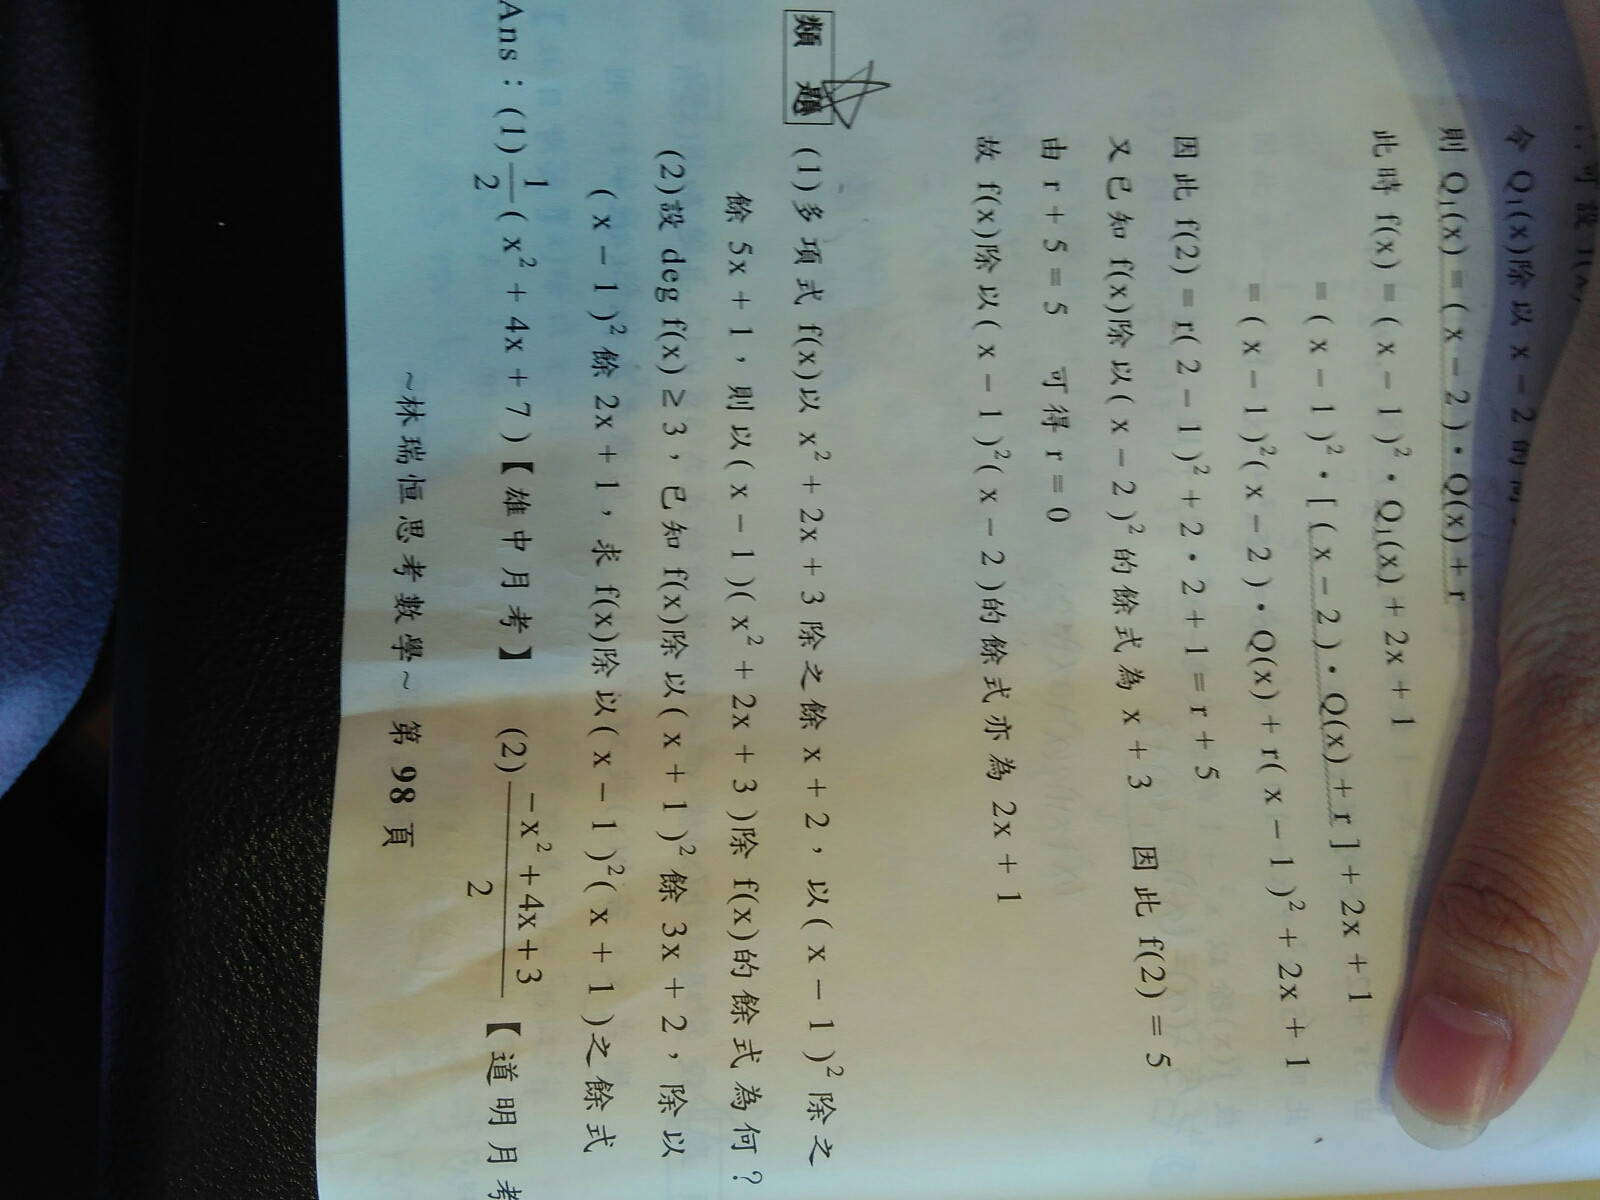 令 Q₁(x)除以 x－2 的
則 Q₁(x)＝( x－2 )·Q(x)＋r
此時 f(x)＝( x－1 )²·Q₁(x)＋2x＋1
＝( x－1 )²·[ ( x－2 )·Q(x)＋r ]＋2x＋1
＝( x－1 )²( x－2 )·Q(x)＋r( x－1 )²＋2x＋1
因此 f(2)＝r( 2－1 )²＋2·2＋1＝r＋5
又已知 f(x)除以( x－2 )²的餘式為 x＋3 因此 f(2)＝5
由 r＋5＝5 可得 r＝0
故 f(x)除以( x－1 )²( x－2 )的餘式亦為 2x＋1
類題 (1)多項式 f(x)以 x²＋2x＋3 除之餘 x＋2，以( x－1 )²除之
餘 5x＋1，則以( x－1 )( x²＋2x＋3 )除 f(x)的餘式為何？
(2)設 deg f(x)≥3，已知 f(x)除以( x＋1 )²餘 3x＋2，除以
( x－1 )²餘 2x＋1，求 f(x)除以( x－1 )²( x＋1 )之餘式
Ans：(1) 1/2 ( x²＋4x＋7 )【雄中月考】 (2) (－x²＋4x＋3)/2 【道明月考
~林瑞恒思考數學~ 第 98 頁